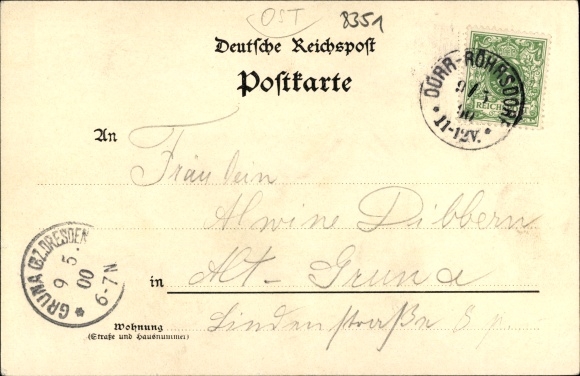 OST 8351
Deutsche Reichspost
Postkarte
DÜRR-RÖHRSDORF
9/5
00
* 11-12V. *
REICHSPOST
An
Fräulein
Alwine Dibbern
GRUNA (BZ.DRESDEN)
9 5.
00
6-7N
in Alt-Gruna
Wohnung
(Straße und Hausnummer)
Lindenstraße 8 p.